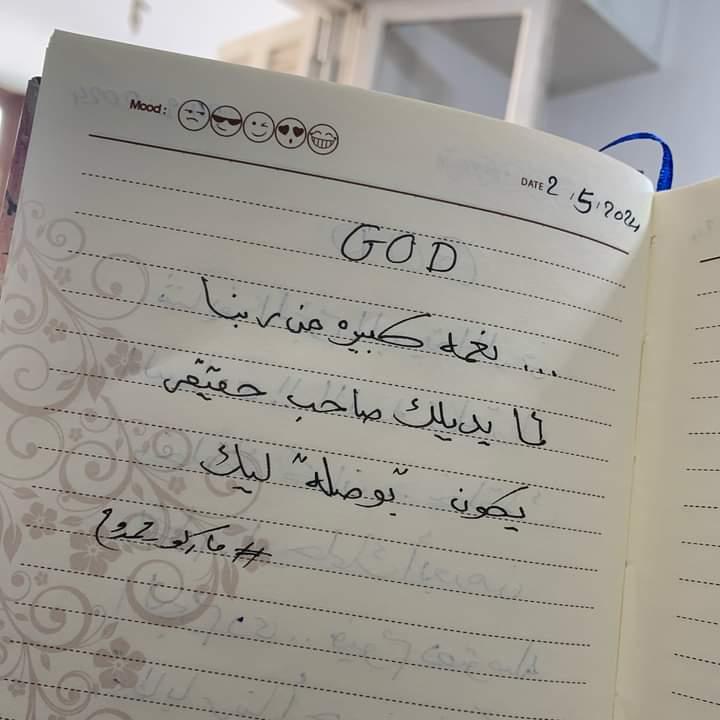 Mood:
DATE 2 / 5 / 2024
GOD
... نعمه كبيره من ربنا
لما يديلك صاحب حقيقى
يكون "بوصله" ليك
#ماركو ممدوح